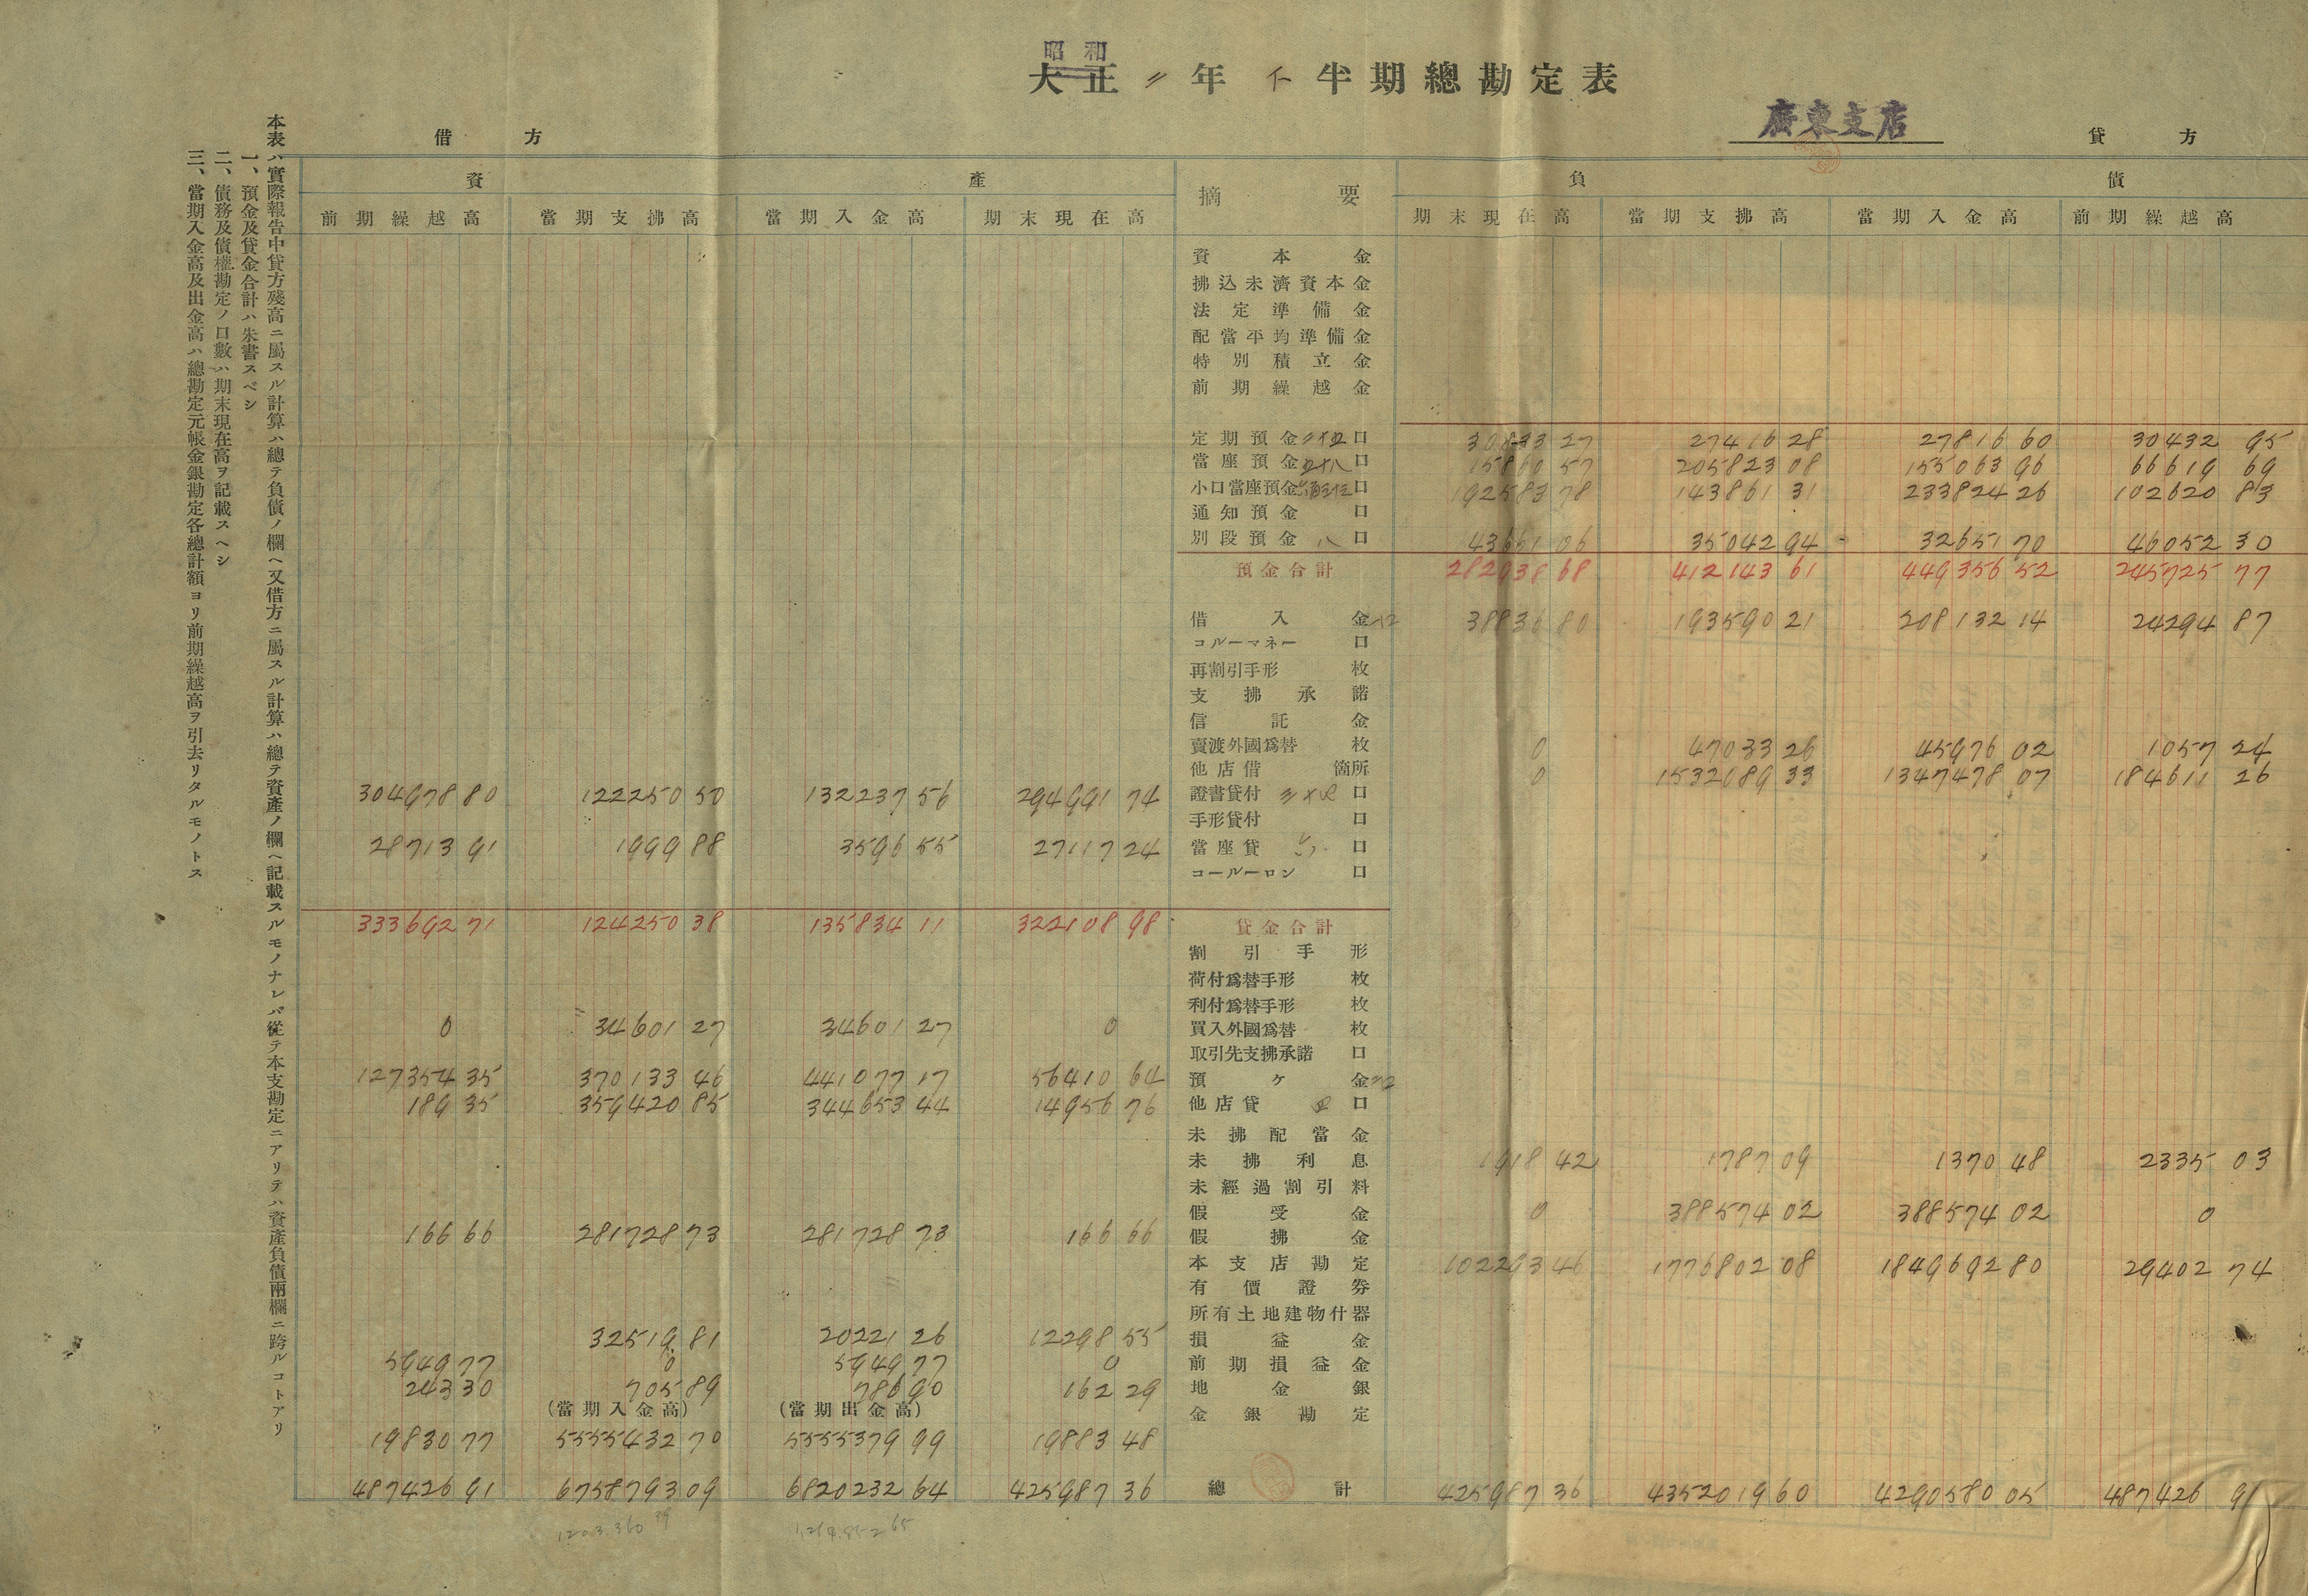 昭和
大正 〃 年 下 半期總勘定表
廣東支店
借方
貸方
資產
摘要
負債
前期繰越高 當期支拂高 當期入金高 期末現在高 期末現在高 當期支拂高 當期入金高 前期繰越高
資本金
拂込未濟資本金
法定準備金
配當平均準備金
特別積立金
前期繰越金
定期預金 口 30833 27 27416 28 27816 60 30432 95
當座預金 口 15860 57 205823 08 155063 96 66619 69
小口當座預金 口 192583 78 143861 31 233824 26 102620 83
通知預金 口
別段預金 八 口 43661 06 35042 94 32651 70 46052 30
預金合計 282938 68 412143 61 449356 52 245725 77
借入金 38836 80 193590 21 208132 14 24294 87
コルーマネー 口
再割引手形 枚
支拂承諾
信託金
賣渡外國爲替 枚 0 47033 26 45976 02 1057 24
他店借 箇所 0 1532089 33 1347478 07 184611 26
304978 80 122250 50 132237 56 294991 74 證書貸付 口
手形貸付 口
28713 91 1999 88 3596 55 27117 24 當座貸 口
コールーロン 口
333692 71 124250 38 135834 11 322108 98 貸金合計
割引手形
荷付爲替手形 枚
利付爲替手形 枚
0 34601 27 34601 27 0 買入外國爲替 枚
取引先支拂承諾 口
127354 35 370133 46 441077 17 56410 64 預ケ金
189 35 359420 85 344653 44 14956 76 他店貸 口
未拂配當金
未拂利息 1918 42 1787 09 1370 48 2335 03
未經過割引料
假受金 0 388574 02 388574 02 0
166 66 281728 73 281728 73 166 66 假拂金
本支店勘定 102293 46 1776802 08 1849692 80 29402 74
有價證券
所有土地建物什器
32519 81 20221 26 12298 55 損益金
5949 77 0 5949 77 0 前期損益金
243 30 705 89 786 90 162 29 地金銀
(當期入金高) (當期出金高) 金銀勘定
19830 77 5555432 70 5555379 99 19883 48
487426 91 6758793 09 6820232 64 425987 36 總計 425987 36 4352019 60 4290580 05 487426 91
1203.360 39 1,264,852 65
本表ハ實際報告中貸方殘高ニ屬スル計算ハ總テ負債ノ欄ヘ又借方ニ屬スル計算ハ總テ資產ノ欄ヘ記載スルモノナレバ從テ本支勘定ニアリテハ資產負債兩欄ニ跨ルコトアリ
一、預金及貸金合計ハ朱書スベシ
二、債務及債權勘定ノ口數ハ期末現在高ヲ記載スヘシ
三、當期入金高及出金高ハ總勘定元帳金銀勘定各總計額ヨリ前期繰越高ヲ引去リタルモノトス